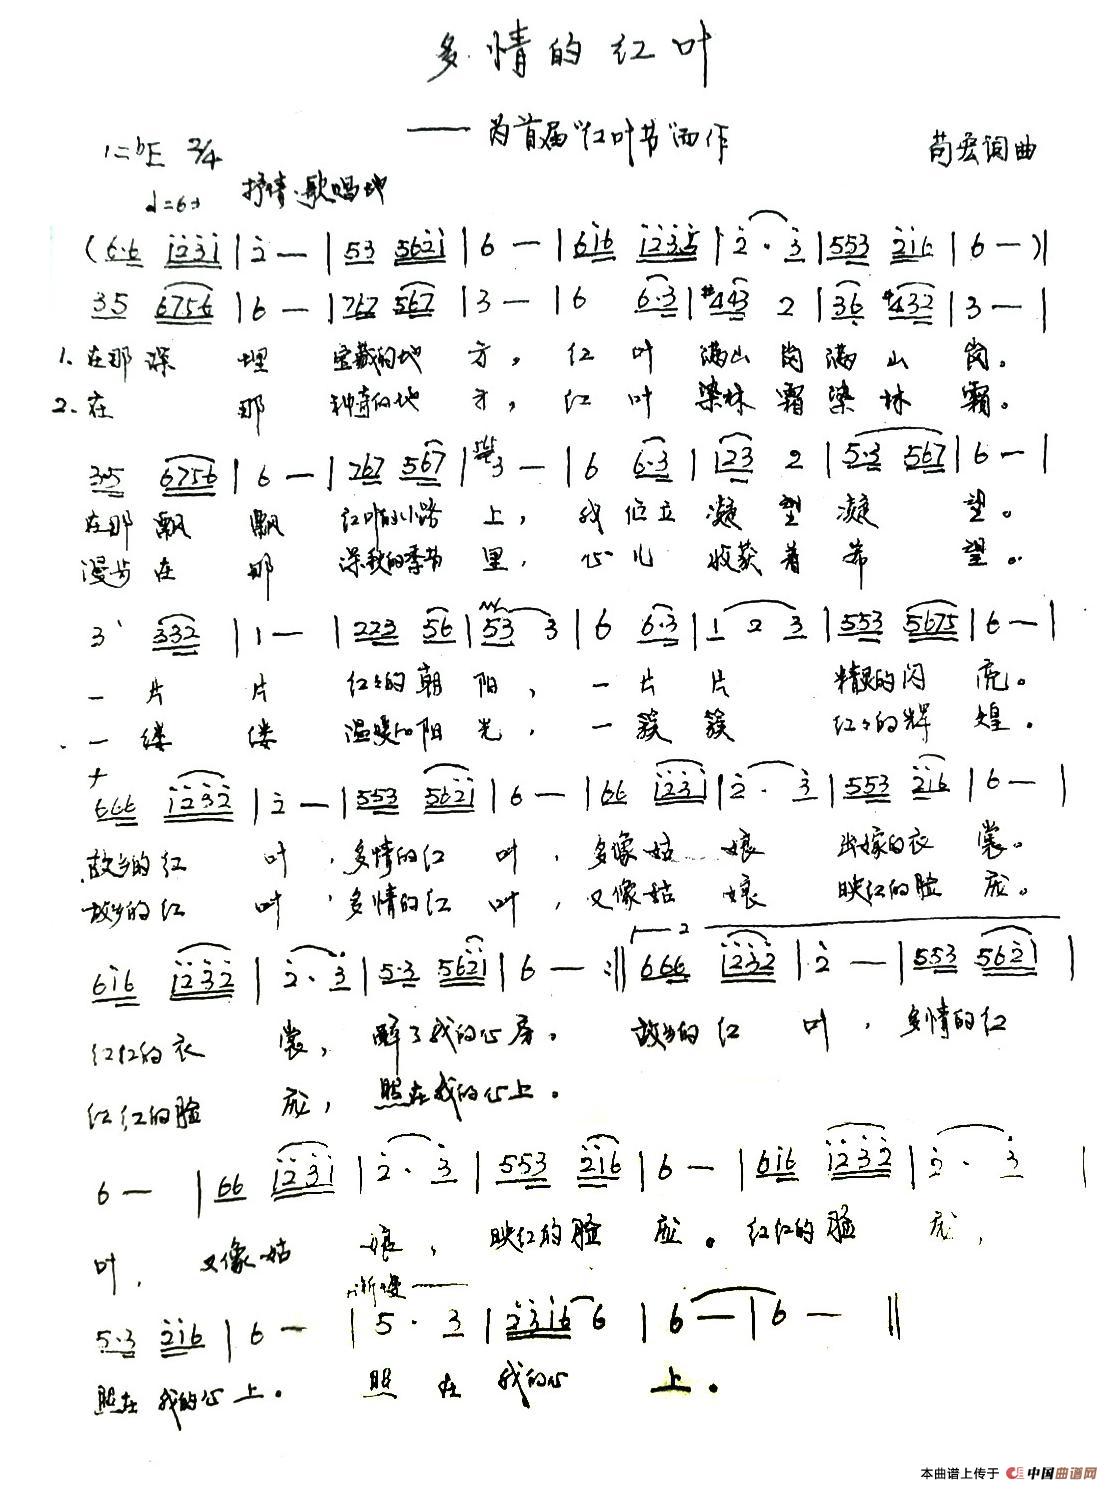 多情的红叶
—— 为首届"红叶节"而作
1=♭E 2/4
苟宏词曲
♩=63 抒情、歌唱地
(6·6 1231 | 2 — | 53 5621 | 6 — | 616 1235 | 2 · 3 | 553 216 | 6 — )|
35 6756 | 6 — | 767 567 | 3 — | 6 6·3 | #443 2 | 36 #432 | 3 — |
1. 在那深埋宝藏的地方，红叶满山岗满山岗。
2. 在那神奇的地方，红叶染林霜染林霜。
3·5 6756 | 6 — | 767 567 | 3 — | 6 6·3 | 123 2 | 5·3 567 | 6 — |
在那飘飘红叶的小路上，我伫立凝望凝望。
漫步在那深秋的季节里，心儿收获着希望。
3 332 | 1 — | 223 56 | 53 3 | 6 6·3 | 1 2 3 | 553 5675 | 6 — |
一片片红红的朝阳，一片片精灵的闪亮。
一缕缕温暖的阳光，一簇簇红红的辉煌。
666 1232 | 2 — | 553 5621 | 6 — | 66 1231 | 2 · 3 | 553 216 | 6 — |
故乡的红叶，多情的红叶，多像姑娘出嫁的衣裳。
故乡的红叶，多情的红叶，又像姑娘映红的脸庞。
616 1232 | 2 · 3 | 5·3 5621 | 6 — :‖ 2 666 1232 | 2 — | 553 5621 |
红红的衣裳，醉了我的心房。故乡的红叶，多情的红
红红的脸庞，照在我的心上。
6 — | 66 1231 | 2 · 3 | 553 216 | 6 — | 616 1232 | 2 · 3 |
叶，又像姑娘，映红的脸庞。红红的脸庞，
渐慢——
5·3 216 | 6 — | 5 · 3 | 2316 6 | 6 — | 6 — ‖
照在我的心上。照在我的心上。
本曲谱上传于 中国曲谱网